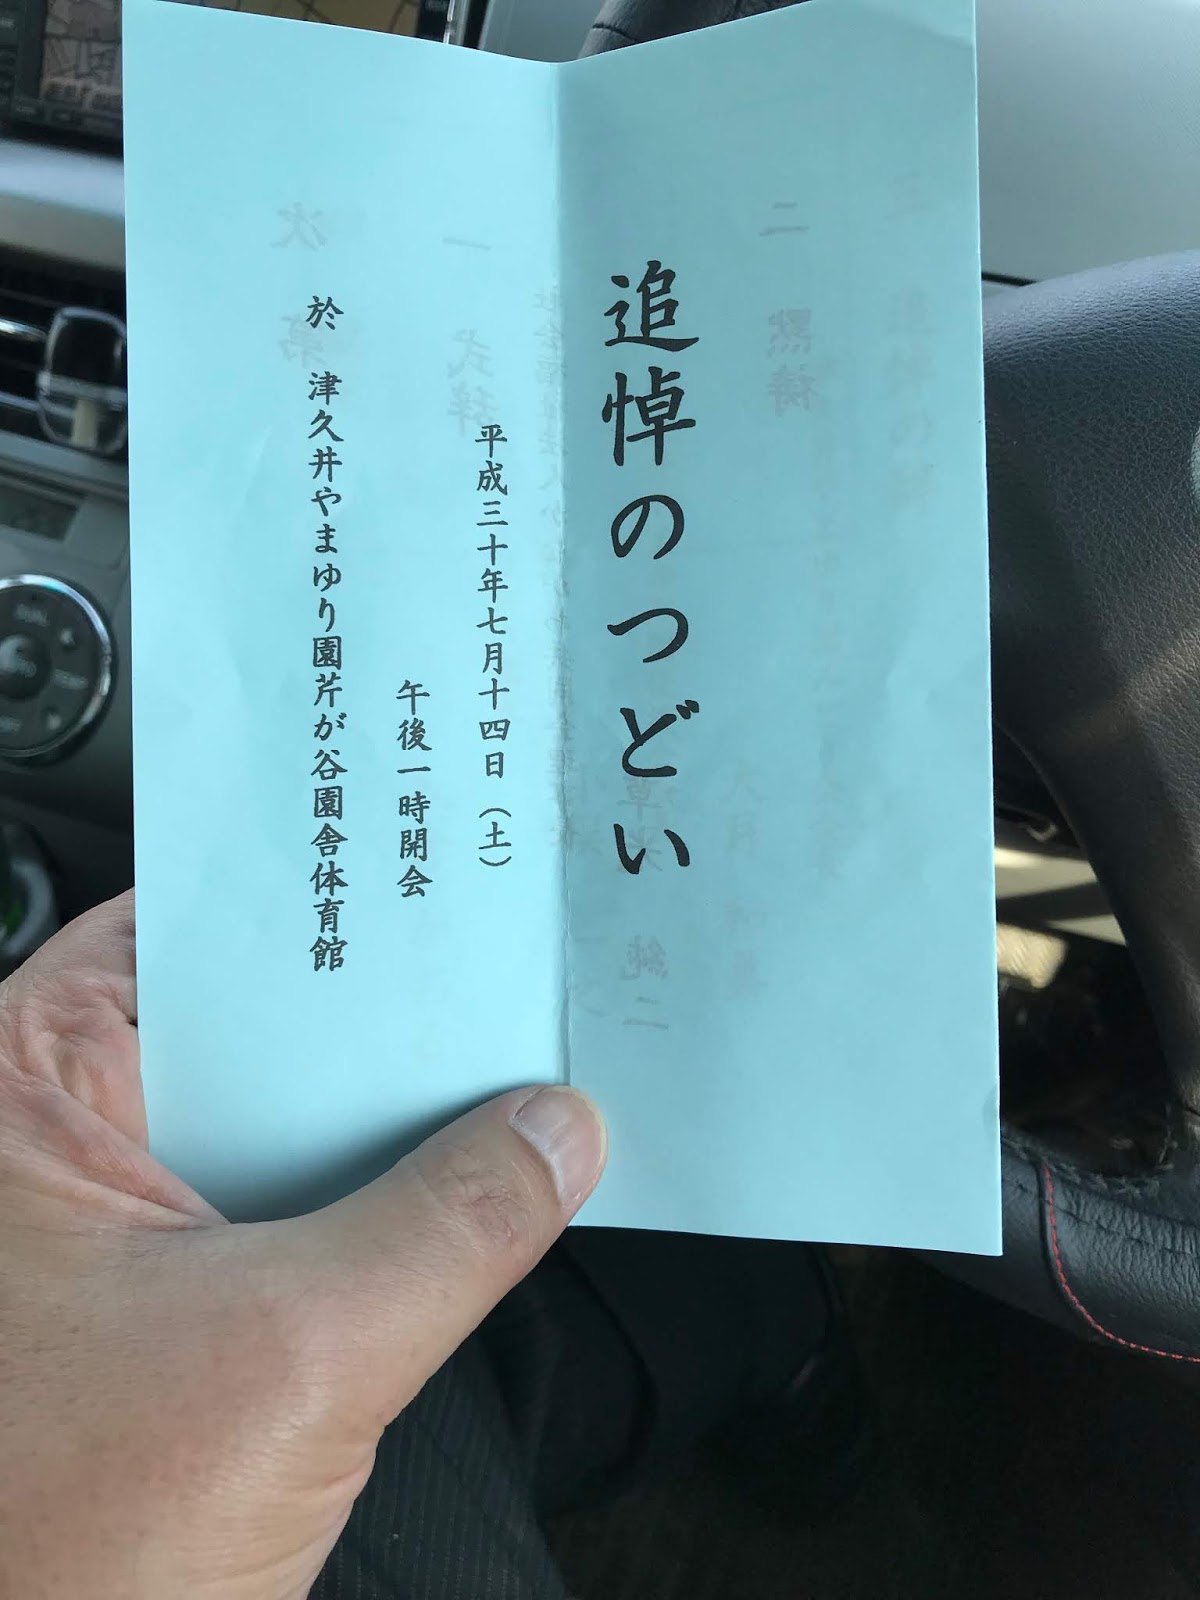 追悼のつどい
平成三十年七月十四日（土）
午後一時開会
於 津久井やまゆり園芹が谷園舎体育館
次第
一 式辞
二 黙祷
三